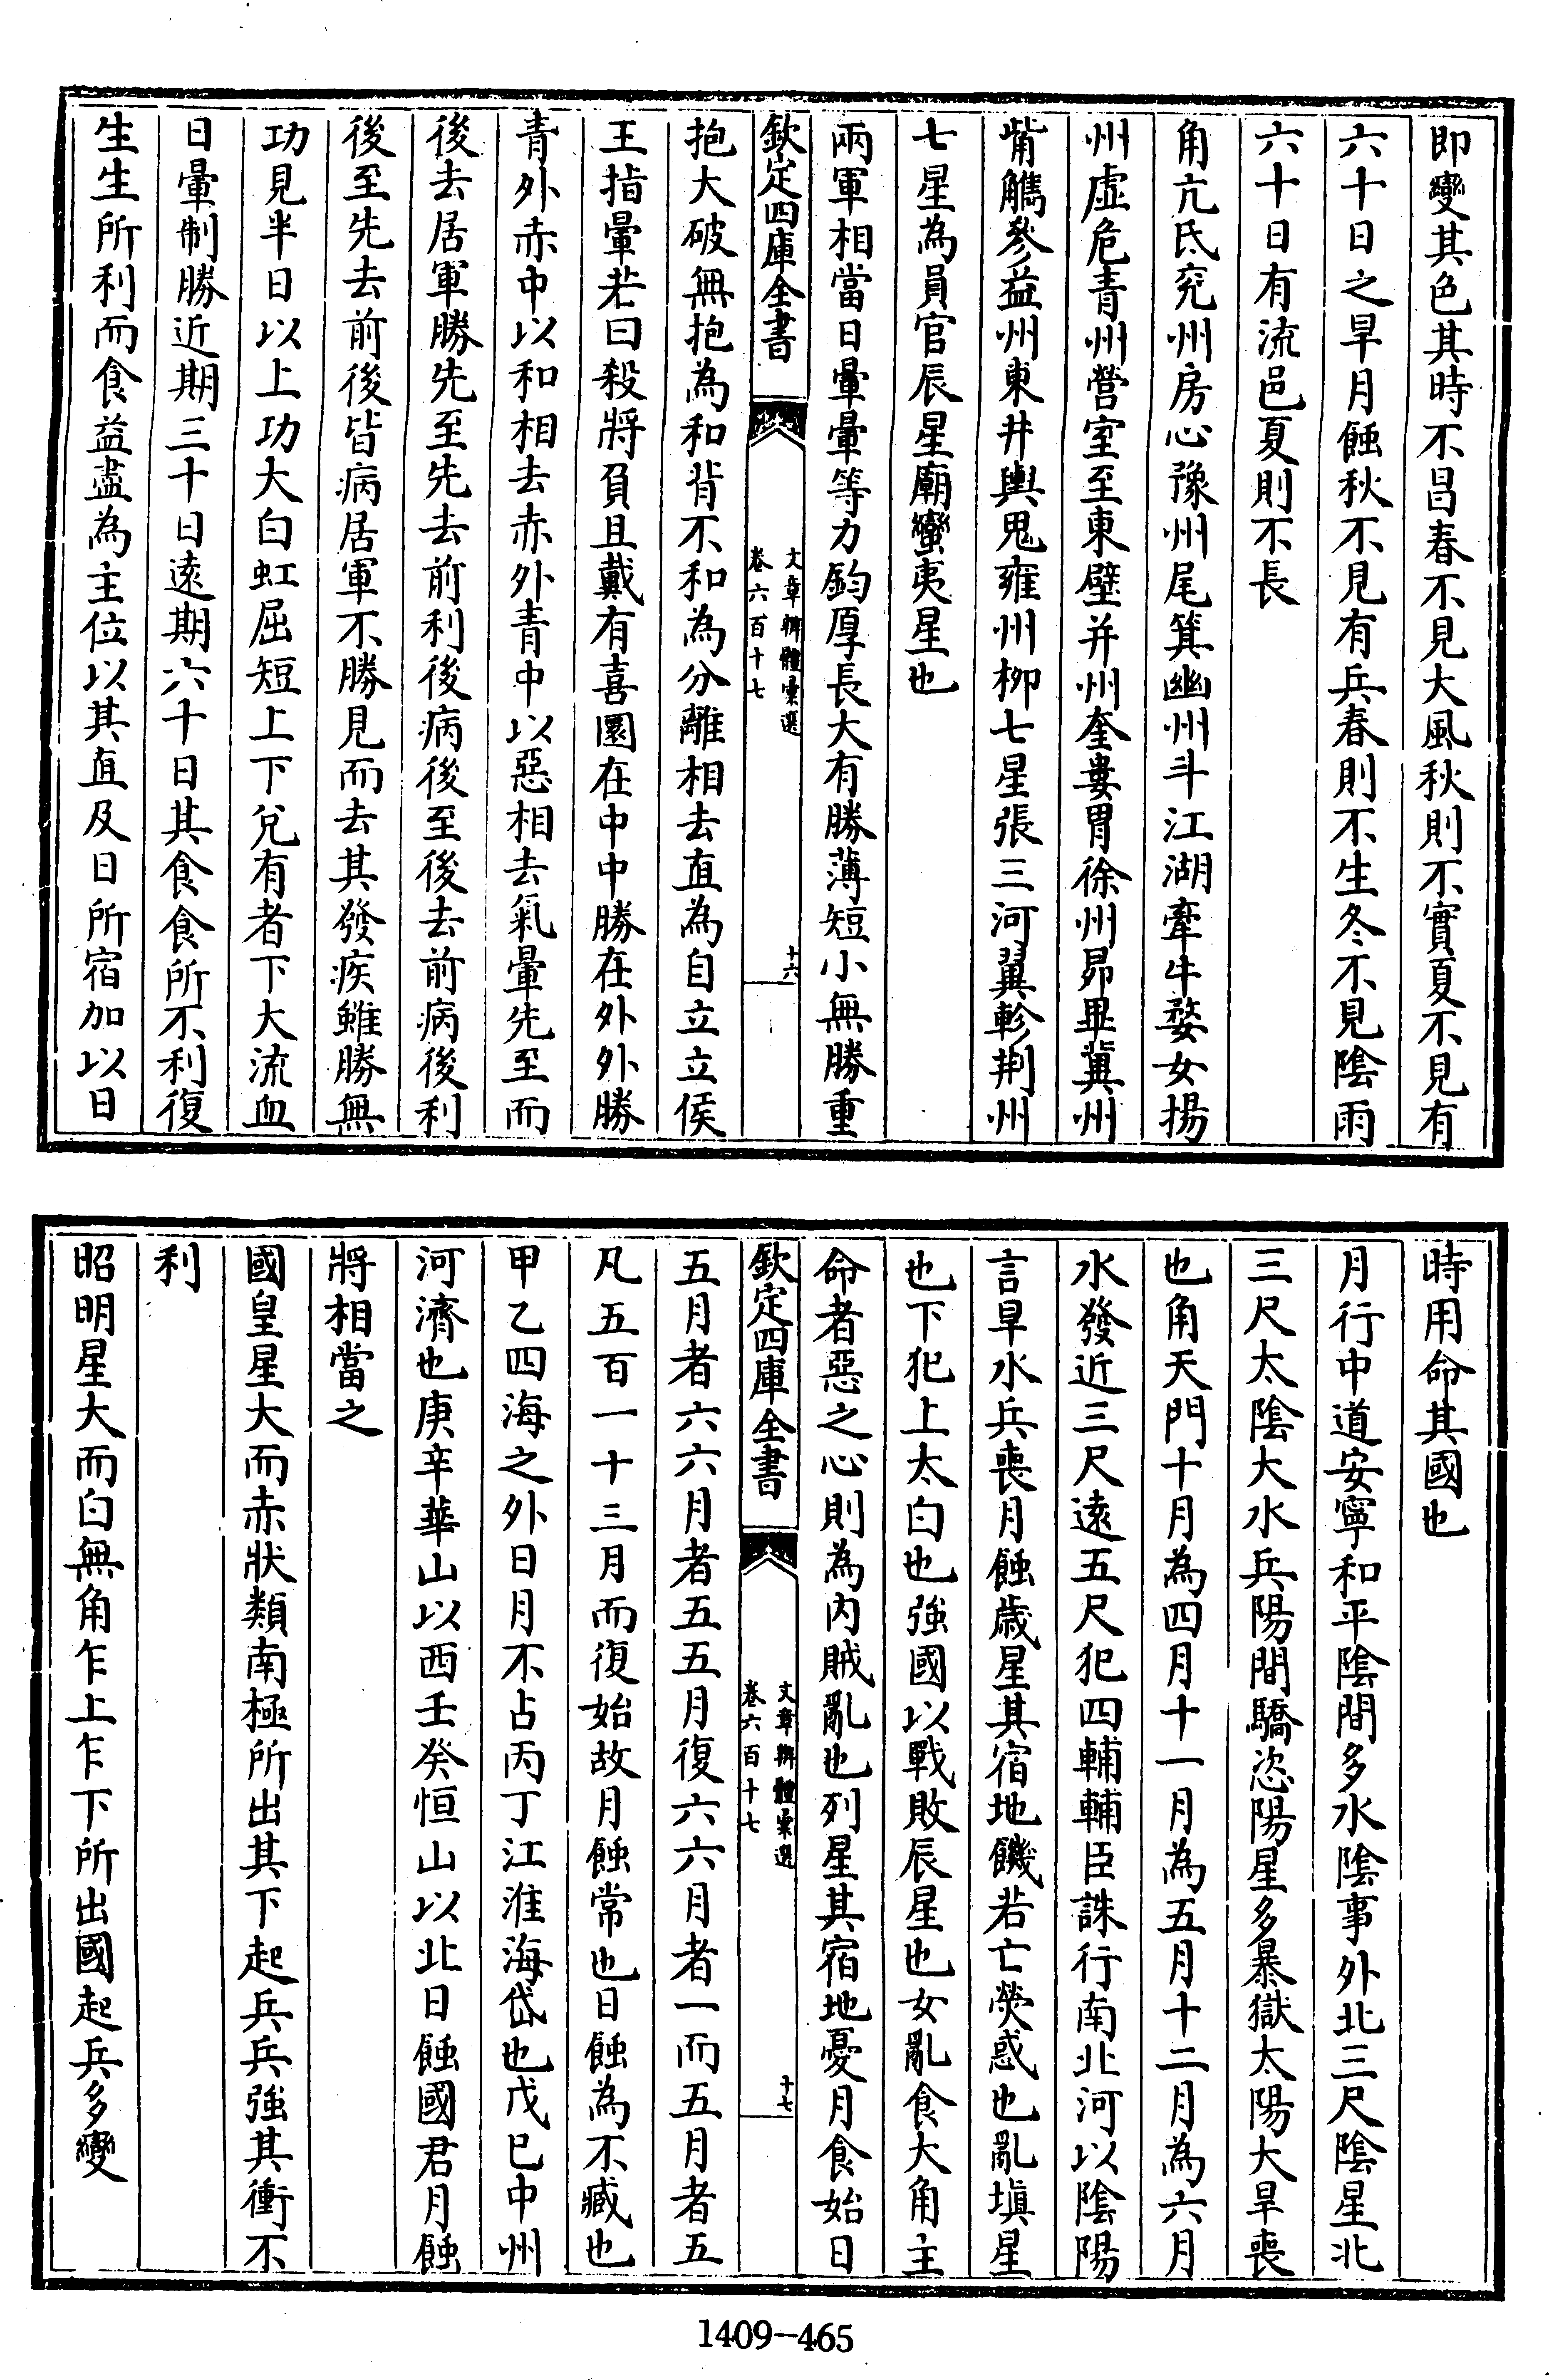 即變其色其時不昌春不見大風秋則不實夏不見有
六十日之旱月蝕秋不見有兵春則不生冬不見陰雨
六十日有流邑夏則不長
角亢氐兖州房心豫州尾箕幽州斗江湖牽牛婺女揚
州虛危青州營室至東壁并州奎婁胃徐州昴畢冀州
觜觿參益州東井輿鬼雍州柳七星張三河翼軫荆州
七星為員官辰星廟蠻夷星也
兩軍相當日暈暈等力鈞厚長大有勝薄短小無勝重
欽定四庫全書
文章辨體彙選
卷六百十七
十六
抱大破無抱為和背不和為分離相去直為自立立侯
王指暈若曰殺將負且戴有喜圜在中中勝在外外勝
青外赤中以和相去赤外青中以惡相去氣暈先至而
後去居軍勝先至先去前利後病後至後去前病後利
後至先去前後皆病居軍不勝見而去其發疾雖勝無
功見半日以上功大白虹屈短上下兌有者下大流血
日暈制勝近期三十日遠期六十日其食食所不利復
生生所利而食益盡為主位以其直及日所宿加以日
時用命其國也
月行中道安寧和平陰間多水陰事外北三尺陰星北
三尺太陰大水兵陽間驕恣陽星多暴獄太陽大旱喪
也角天門十月為四月十一月為五月十二月為六月
水發近三尺遠五尺犯四輔輔臣誅行南北河以陰陽
言旱水兵喪月蝕歲星其宿地饑若亡熒惑也亂填星
也下犯上太白也強國以戰敗辰星也女亂食大角主
命者惡之心則為內賊亂也列星其宿地憂月食始日
欽定四庫全書
文章辨體彙選
卷六百十七
十七
五月者六六月者五五月復六六月者一而五月者五
凡五百一十三月而復始故月蝕常也日蝕為不臧也
甲乙四海之外日月不占丙丁江淮海岱也戊已中州
河濟也庚辛華山以西壬癸恒山以北日蝕國君月蝕
將相當之
國皇星大而赤狀類南極所出其下起兵兵強其衝不
利
昭明星大而白無角乍上乍下所出國起兵多變
1409-465